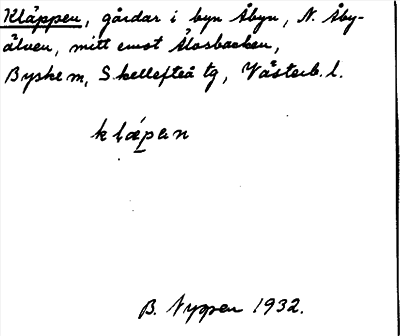 Kläppen, gårdar i byn Åbyn, N. Åby-
älven, mitt emot Ålosbacken,
Byske sn, Skellefteå tg, Västerb. l.
klæpen
B. Nyppen 1932.